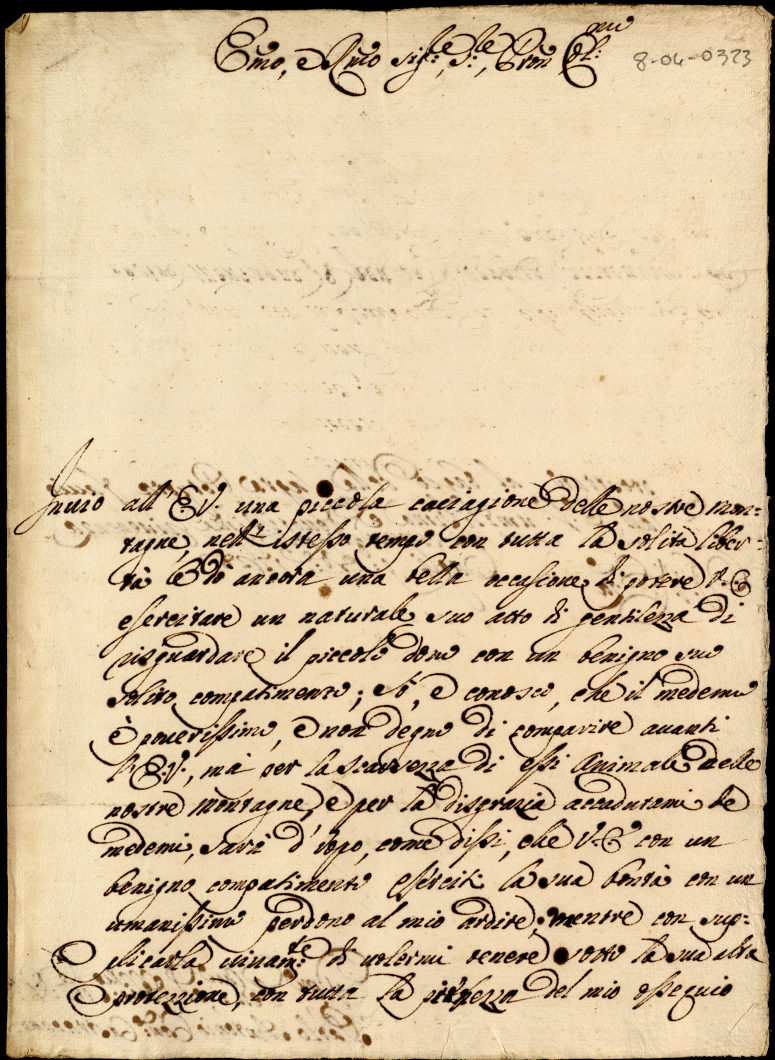 Emo, e Rmo Sigre, Sre, Pron Colmo
8-04-0323
Invio all' E.V. una piccola caciagione delle nostre mon=
tagne, nell' istesso tempo con tutta la solita liber=
tà le dò ancora una bella occasione di potere V.E.
esercitare un naturale suo atto di gentilezza di
risguardare il piccolo dono con un benigno suo
solito compatimento; Sò, e conosco, che il medemo
è poverissimo, e non degno di comparire avanti
l'E.V., mà per la scarsezza di essi Animali delle
nostre montagne, e per la disgrazia accadutami de
medemi, sarà d'vopo, come dissi, che V.E. con un
benigno compatimento eserciti la sua bontà con un
umanissimo perdono al mio ardire, mentre con sup=
plicarla vivamte di volermi tenere sotto la sua alta
protezzione, con tutta la pienezza del mio ossequio